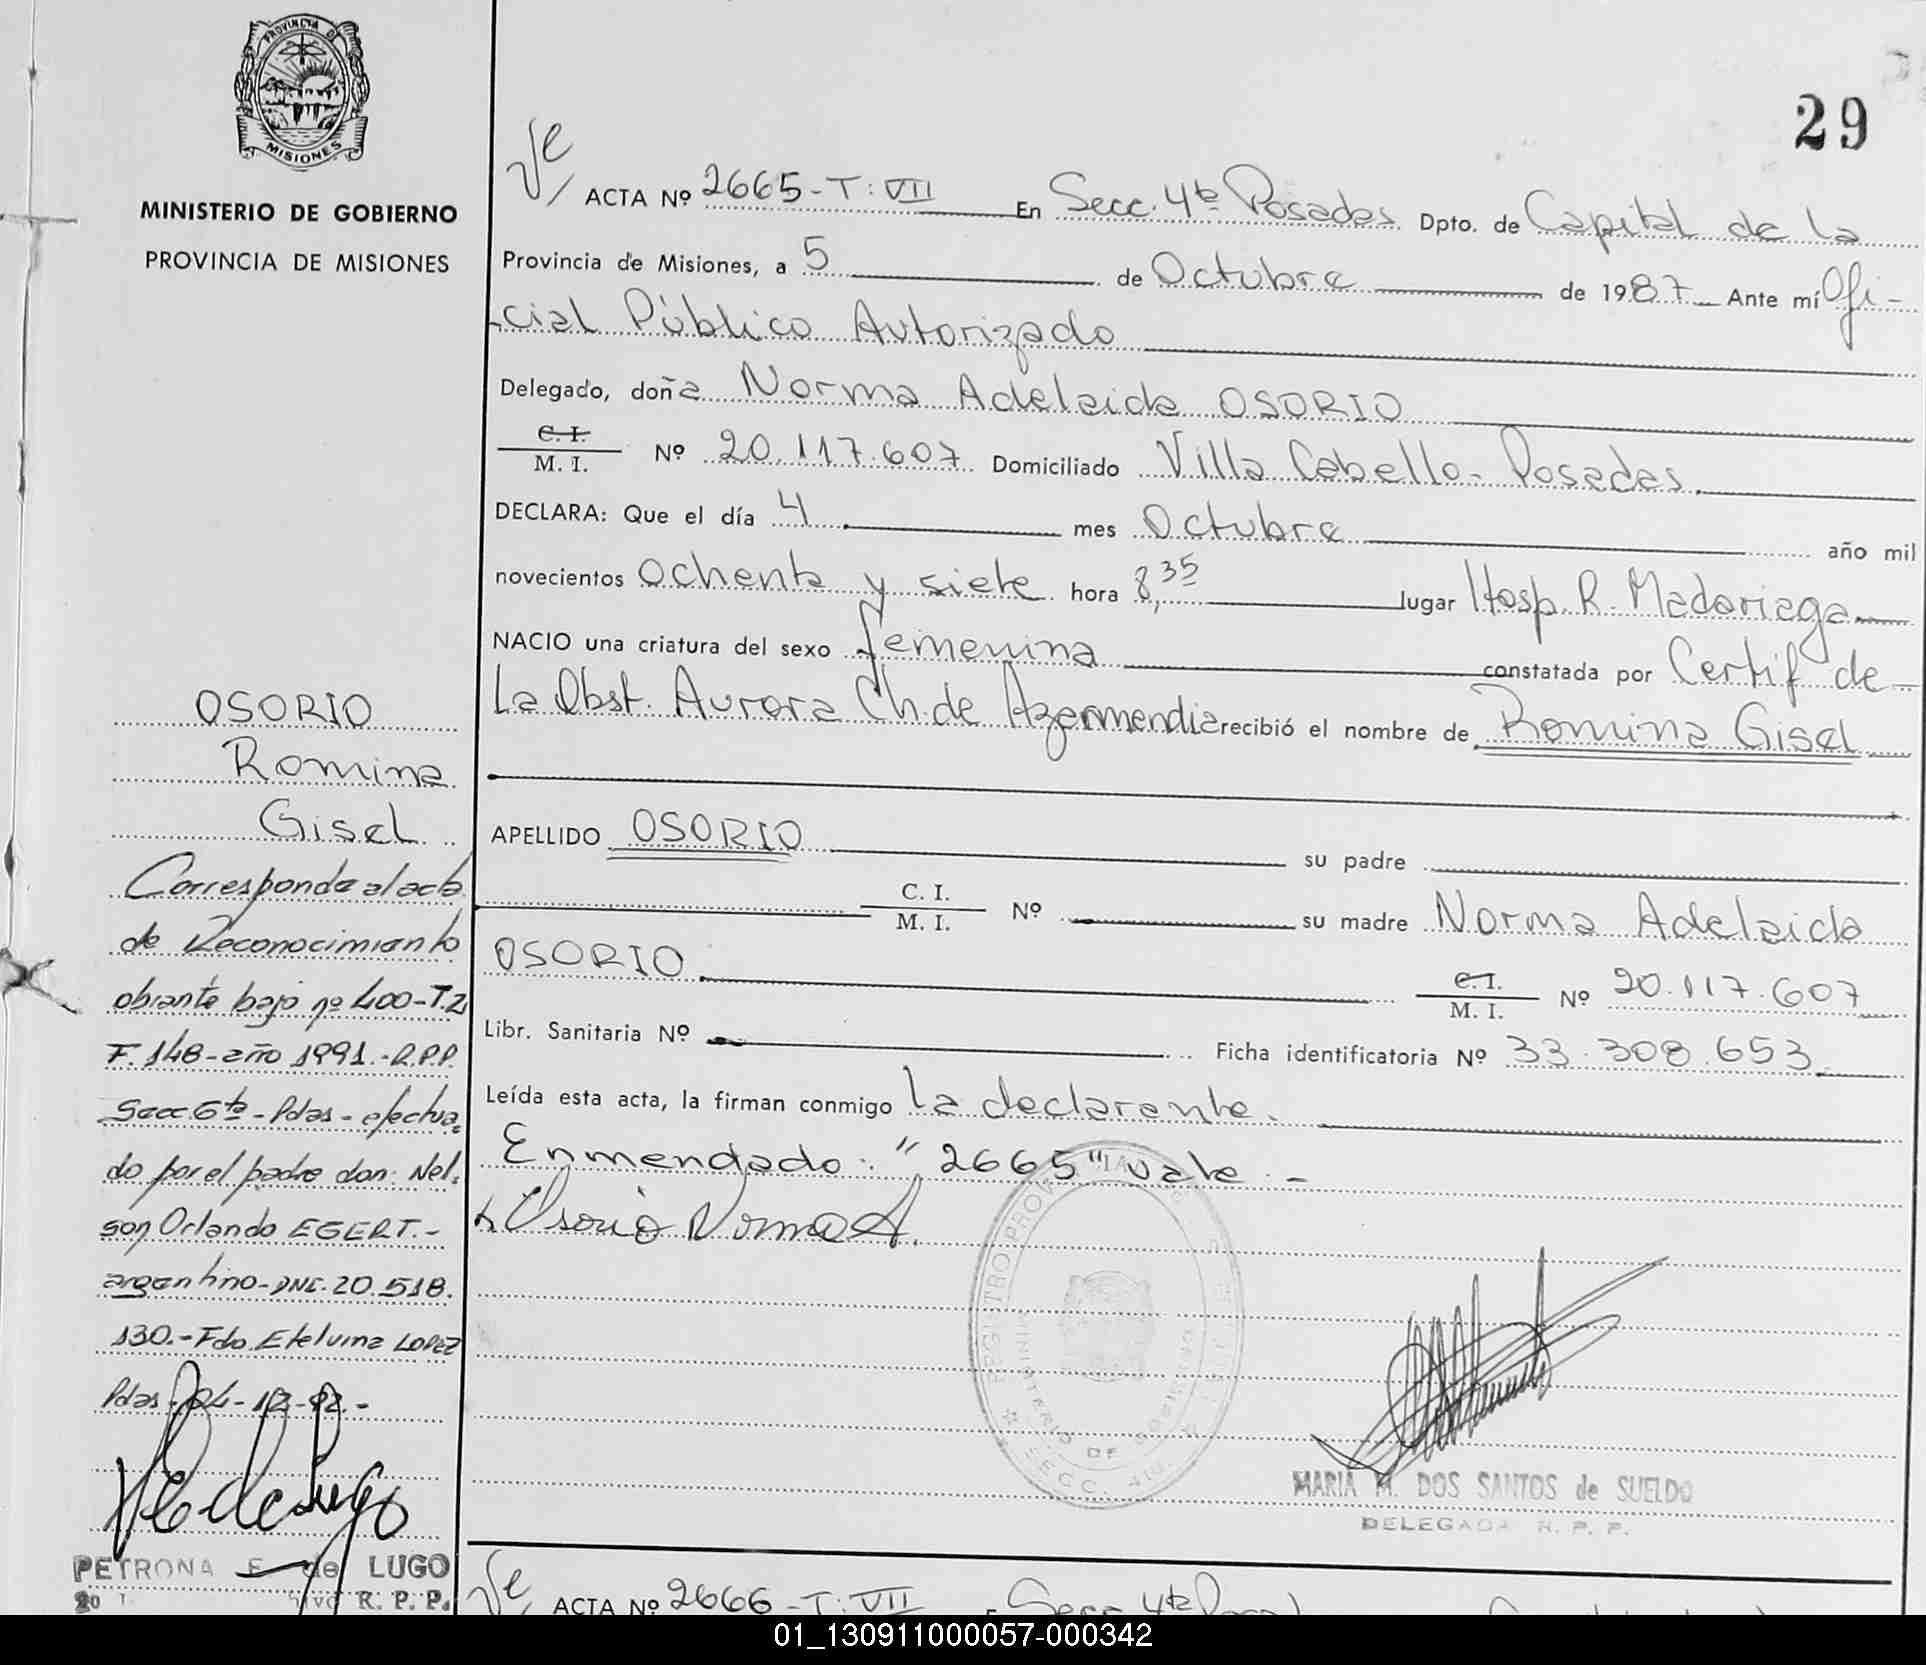 PROVINCIA DE
MISIONES
MINISTERIO DE GOBIERNO
PROVINCIA DE MISIONES
29
Ve/ ACTA Nº 2665-T:VII En Secc. 4ta Posadas Dpto. de Capital de la
Provincia de Misiones, a 5 de Octubre de 1987 Ante mí Ofi-
cial Público Autorizado
Delegado, doña Norma Adelaida OSORIO
C. I.
M. I. Nº 20.117.607 Domiciliado Villa Cabello-Posadas.
DECLARA: Que el día 4 mes Octubre año mil
novecientos ochenta y siete hora 8,35 lugar Hosp. R. Madariaga
NACIO una criatura del sexo femenina constatada por Certif de
la Obst. Aurora Ch. de Azarmendia recibió el nombre de Romina Gisel
APELLIDO OSORIO su padre
C. I.
M. I. Nº su madre Norma Adelaida
OSORIO
C. I.
M. I. Nº 20.117.607
Libr. Sanitaria Nº Ficha identificatoria Nº 33.308.653
Leída esta acta, la firman conmigo la declarante.
Enmendado: "2665" vale.-
Osorio Norma A.
REGISTRO PROVINCIAL DE LAS
MINISTERIO DE GOBIERNO
SECC. 4ta.
MARIA M. DOS SANTOS de SUELDO
DELEGADA R. P. P.
OSORIO
Romina
Gisel
Corresponde al acta
de Reconocimiento
obrante bajo nº 400-T.2
F. 148-año 1991.-R.P.P.
Secc. 6ta-Pdas-efectua
do por el padre don: Nel-
son Orlando EGERT.-
argentino-DNI.20.518.
130.-Fdo. Etelvina Lopez
Pdas. 04-12-92.-
PETRONA E. de LUGO
R. P. P.
Ve/ ACTA Nº 2666-T:VII
01_130911000057-000342